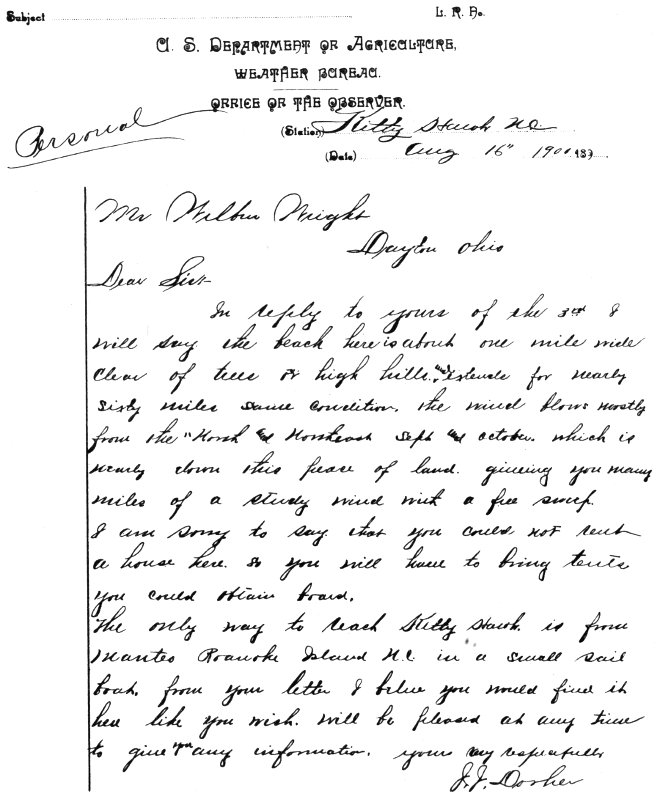 Subject
L. R. No.
U. S. DEPARTMENT OF AGRICULTURE,
WEATHER BUREAU.
OFFICE OF THE OBSERVER.
Personal
(Station) Kitty Hawk N.C.
(Date) Aug 16" 1900 189
Mr Wilbur Wright
Dayton Ohio
Dear Sir
In reply to yours of the 3rd I
will say the beach here is about one mile wide
clear of trees or high hills. and extends for nearly
sixty miles same condition. the wind blows mostly
from the "North and Northeast Sept and October. which is
nearly down this peace of land. giveing you many
miles of a study wind with a free sweep.
I am sorry to say that you could not rent
a house here. so you will have to bring tents
you could obtain board.
The only way to reach Kitty Hawk. is from
Manteo Roanoke Island N.C in a small sail
boat. from your letter I belive you would find it
here like you wish. will be pleased at any time
to give you any information. yours very respectfully
J.J. Dosher